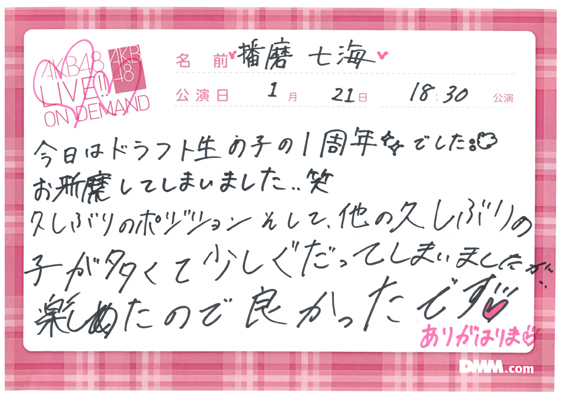 AKB48
LIVE!!
ON DEMAND
AKB
48
名前 播磨 七海
公演日 1月 21日 18:30 公演
今日はドラフト生の子の1周年でした
お邪魔してしまいました..笑
久しぶりのポジションそして、他の久しぶりの
子が多くて少しぐだってしまいましたが...
楽しめたので良かったです!!
ありがはりま
DMM.com